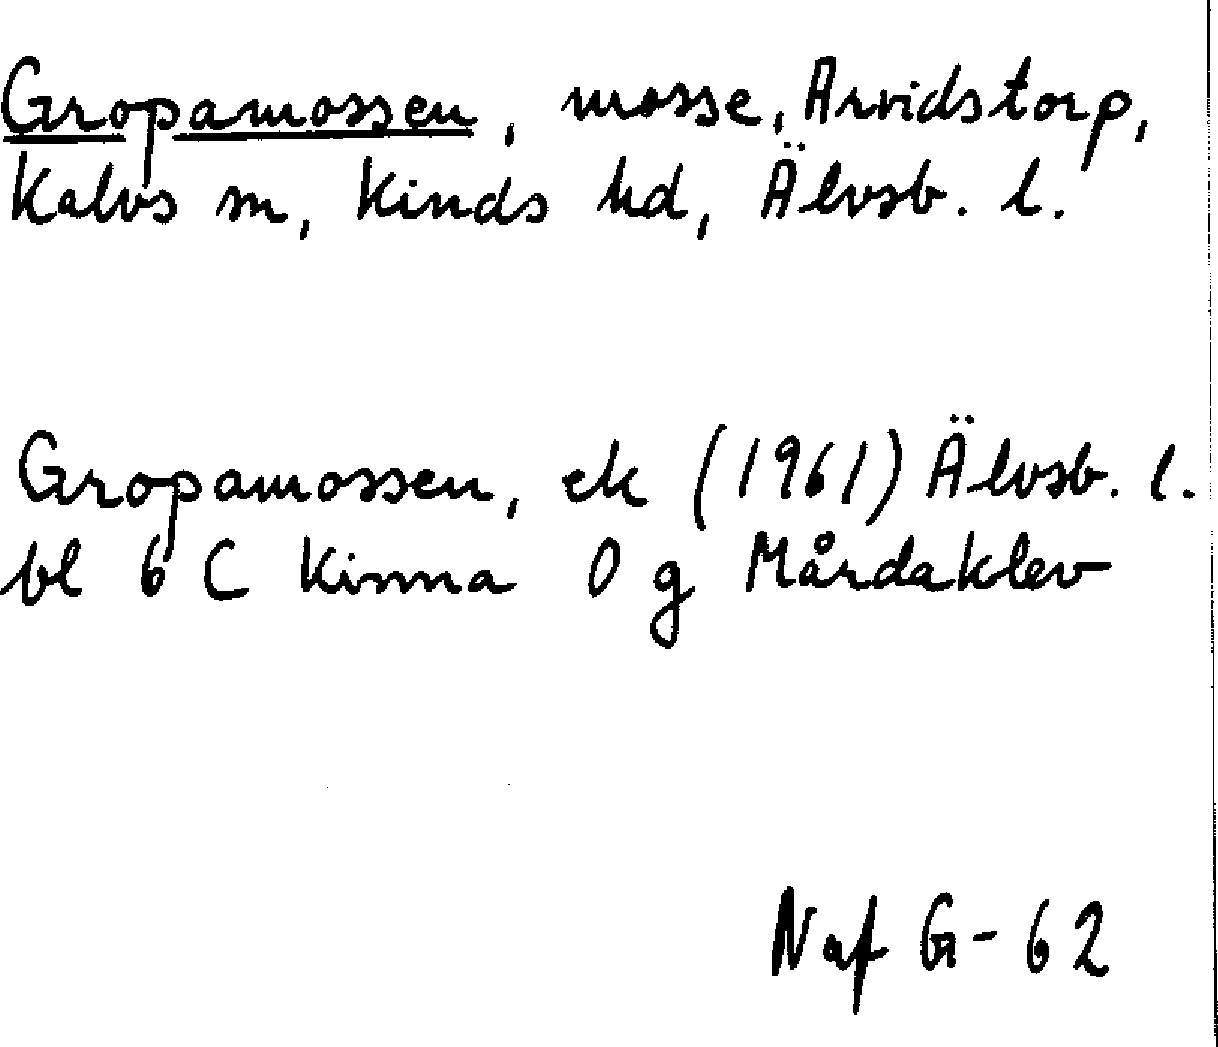 Gropamossen, mosse, Arvidstorp,
Kalvs sn, Kinds hd, Älvsb. l.
Gropamossen, ek (1961) Älvsb. l.
bl 6 C Kinna 0 g Mårdaklev
Naf G-62